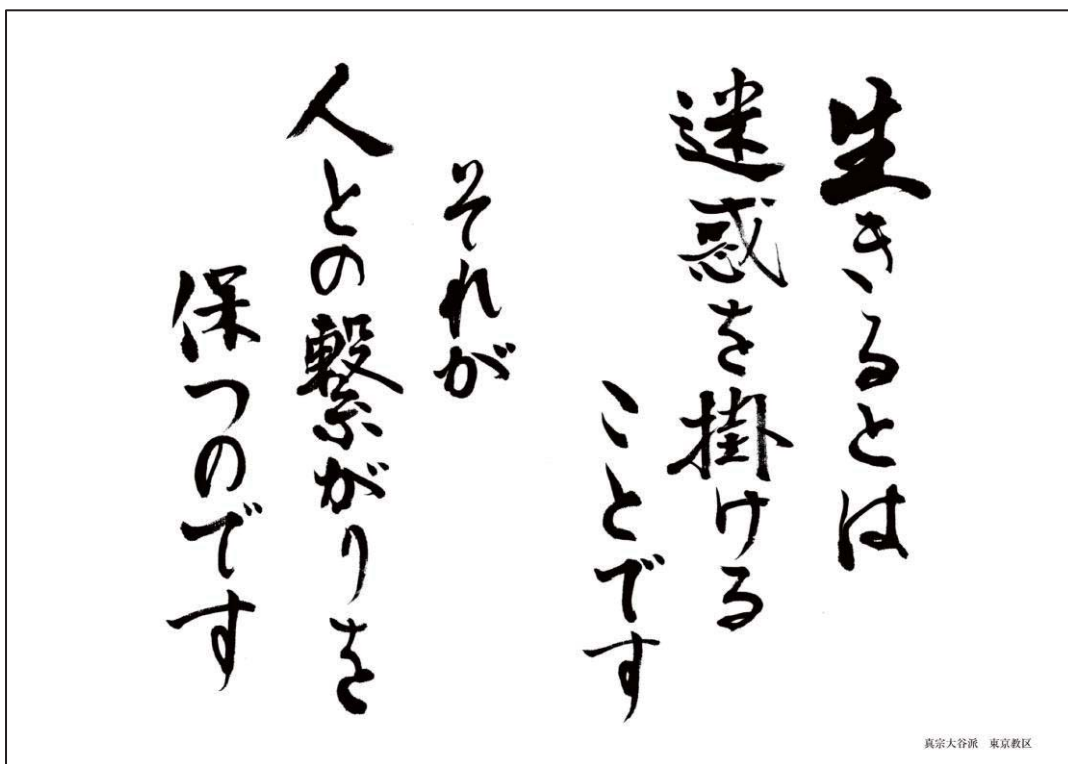 生きるとは
迷惑を掛ける
ことです
それが
人との繋がりを
保つのです
真宗大谷派　東京教区